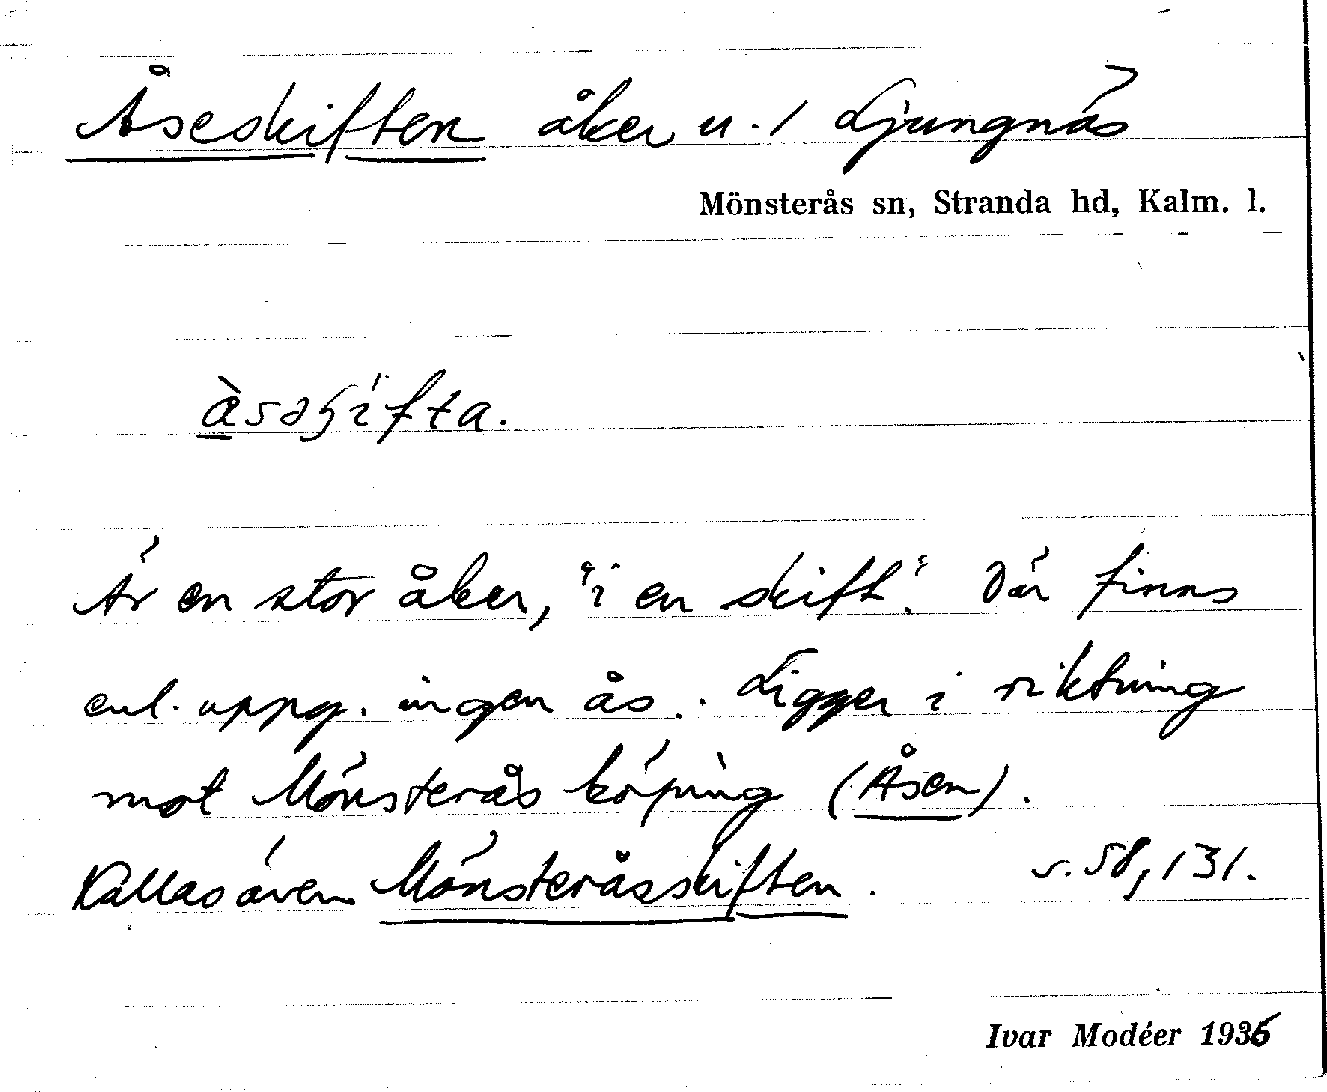 Åseskiften åker u. / Ljungnäs
Mönsterås sn, Stranda hd, Kalm. l.
Är en stor åker, "i en skift". Där finns
enl. uppg. ingen ås. Ligger i riktning
mot Mönsterås köping (Åsen).
Kallas även Mönsteråsskiften. s. 58, 131.
Ivar Modéer 1936